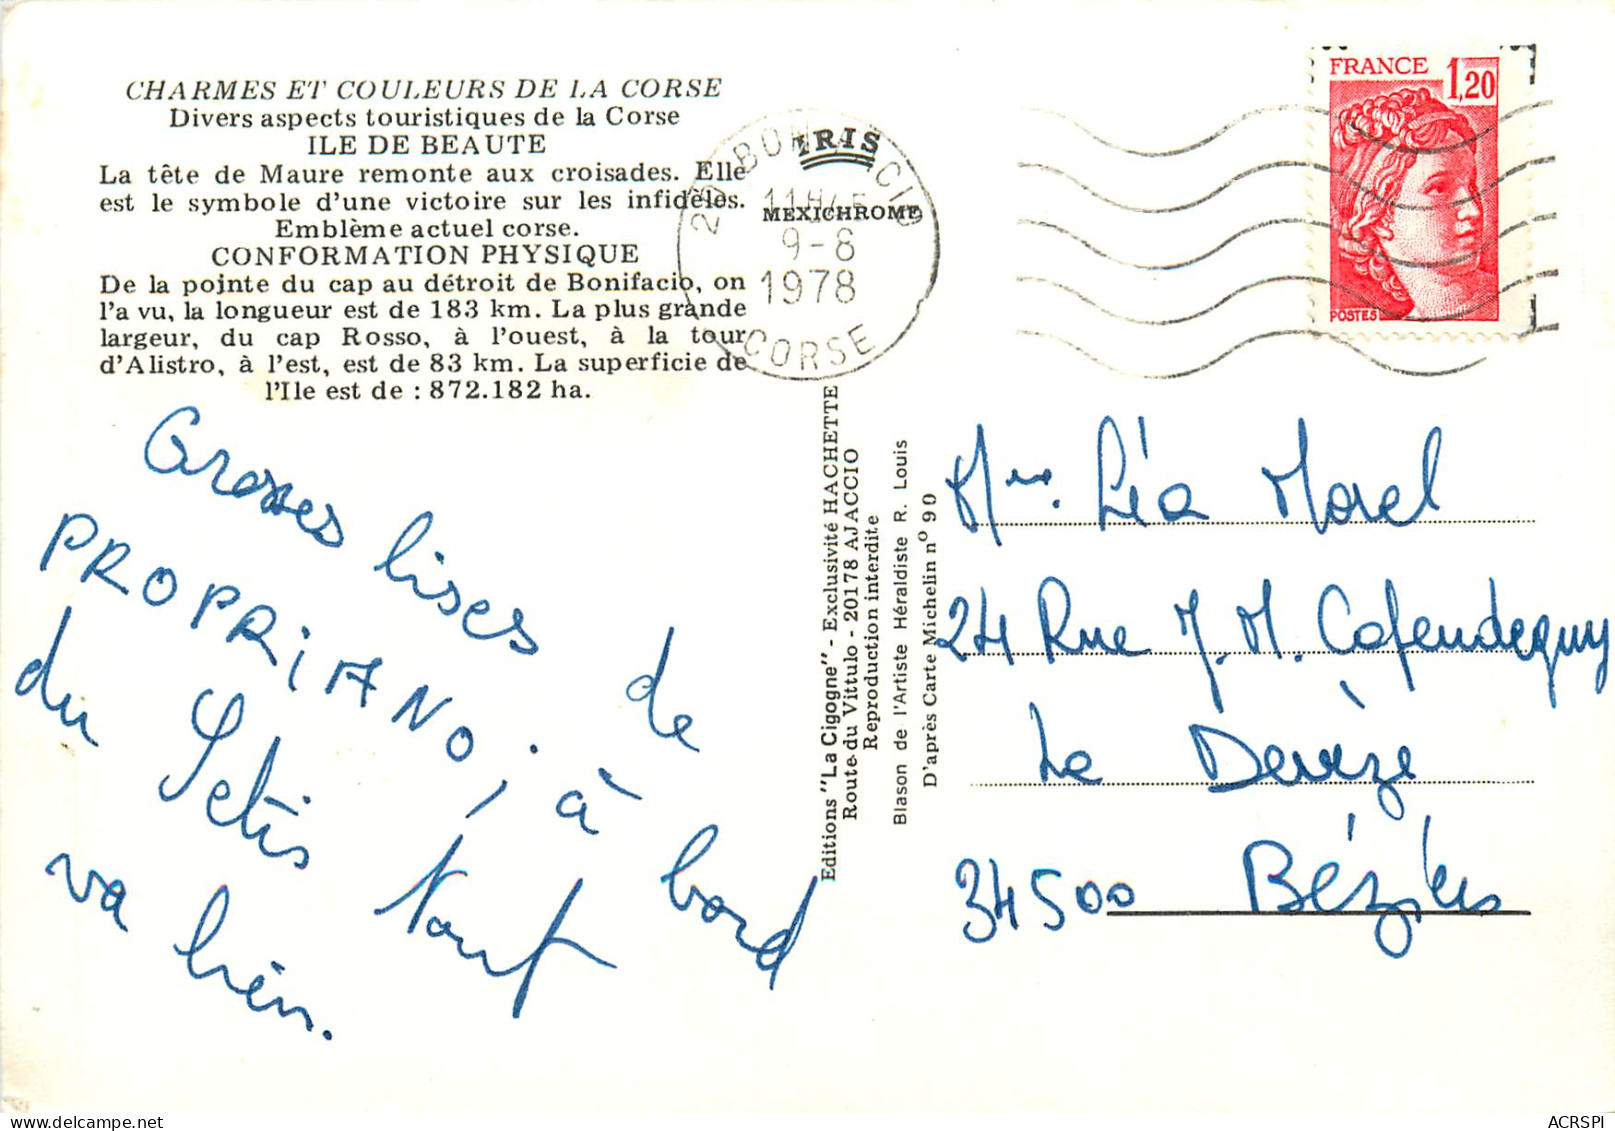 CHARMES ET COULEURS DE LA CORSE
Divers aspects touristiques de la Corse
ILE DE BEAUTE
La tête de Maure remonte aux croisades. Elle
est le symbole d'une victoire sur les infidèles.
Emblème actuel corse.
CONFORMATION PHYSIQUE
De la pointe du cap au détroit de Bonifacio, on
l'a vu, la longueur est de 183 km. La plus grande
largeur, du cap Rosso, à l'ouest, à la tour
d'Alistro, à l'est, est de 83 km. La superficie de
l'Ile est de : 872.182 ha.
Grosses bises de
PROPRiANO, à bord
du Tout
va bien.
IRIS
MEXICHROME
9-8
1978
CORSE
Editions "La Cigogne" - Exclusivité HACHETTE
Route du Vittulo - 20178 AJACCIO
Reproduction interdite
Blason de l'Artiste Héraldiste R. Louis
D'après Carte Michelin n° 90
FRANCE 1,20
POSTES
Mme. Léa Morel
24 Rue J. M. Cafendeguy
La Devèze
34500 Béziers
ACRSPI